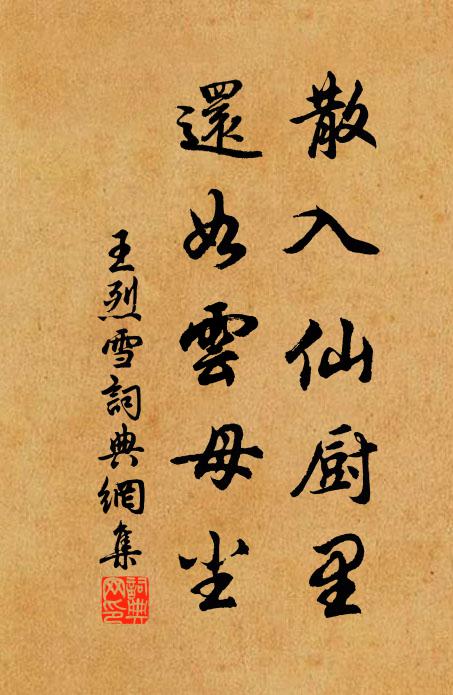 散入仙厨里
還如雲母尘
王烈雪詞典網集
詞典网印